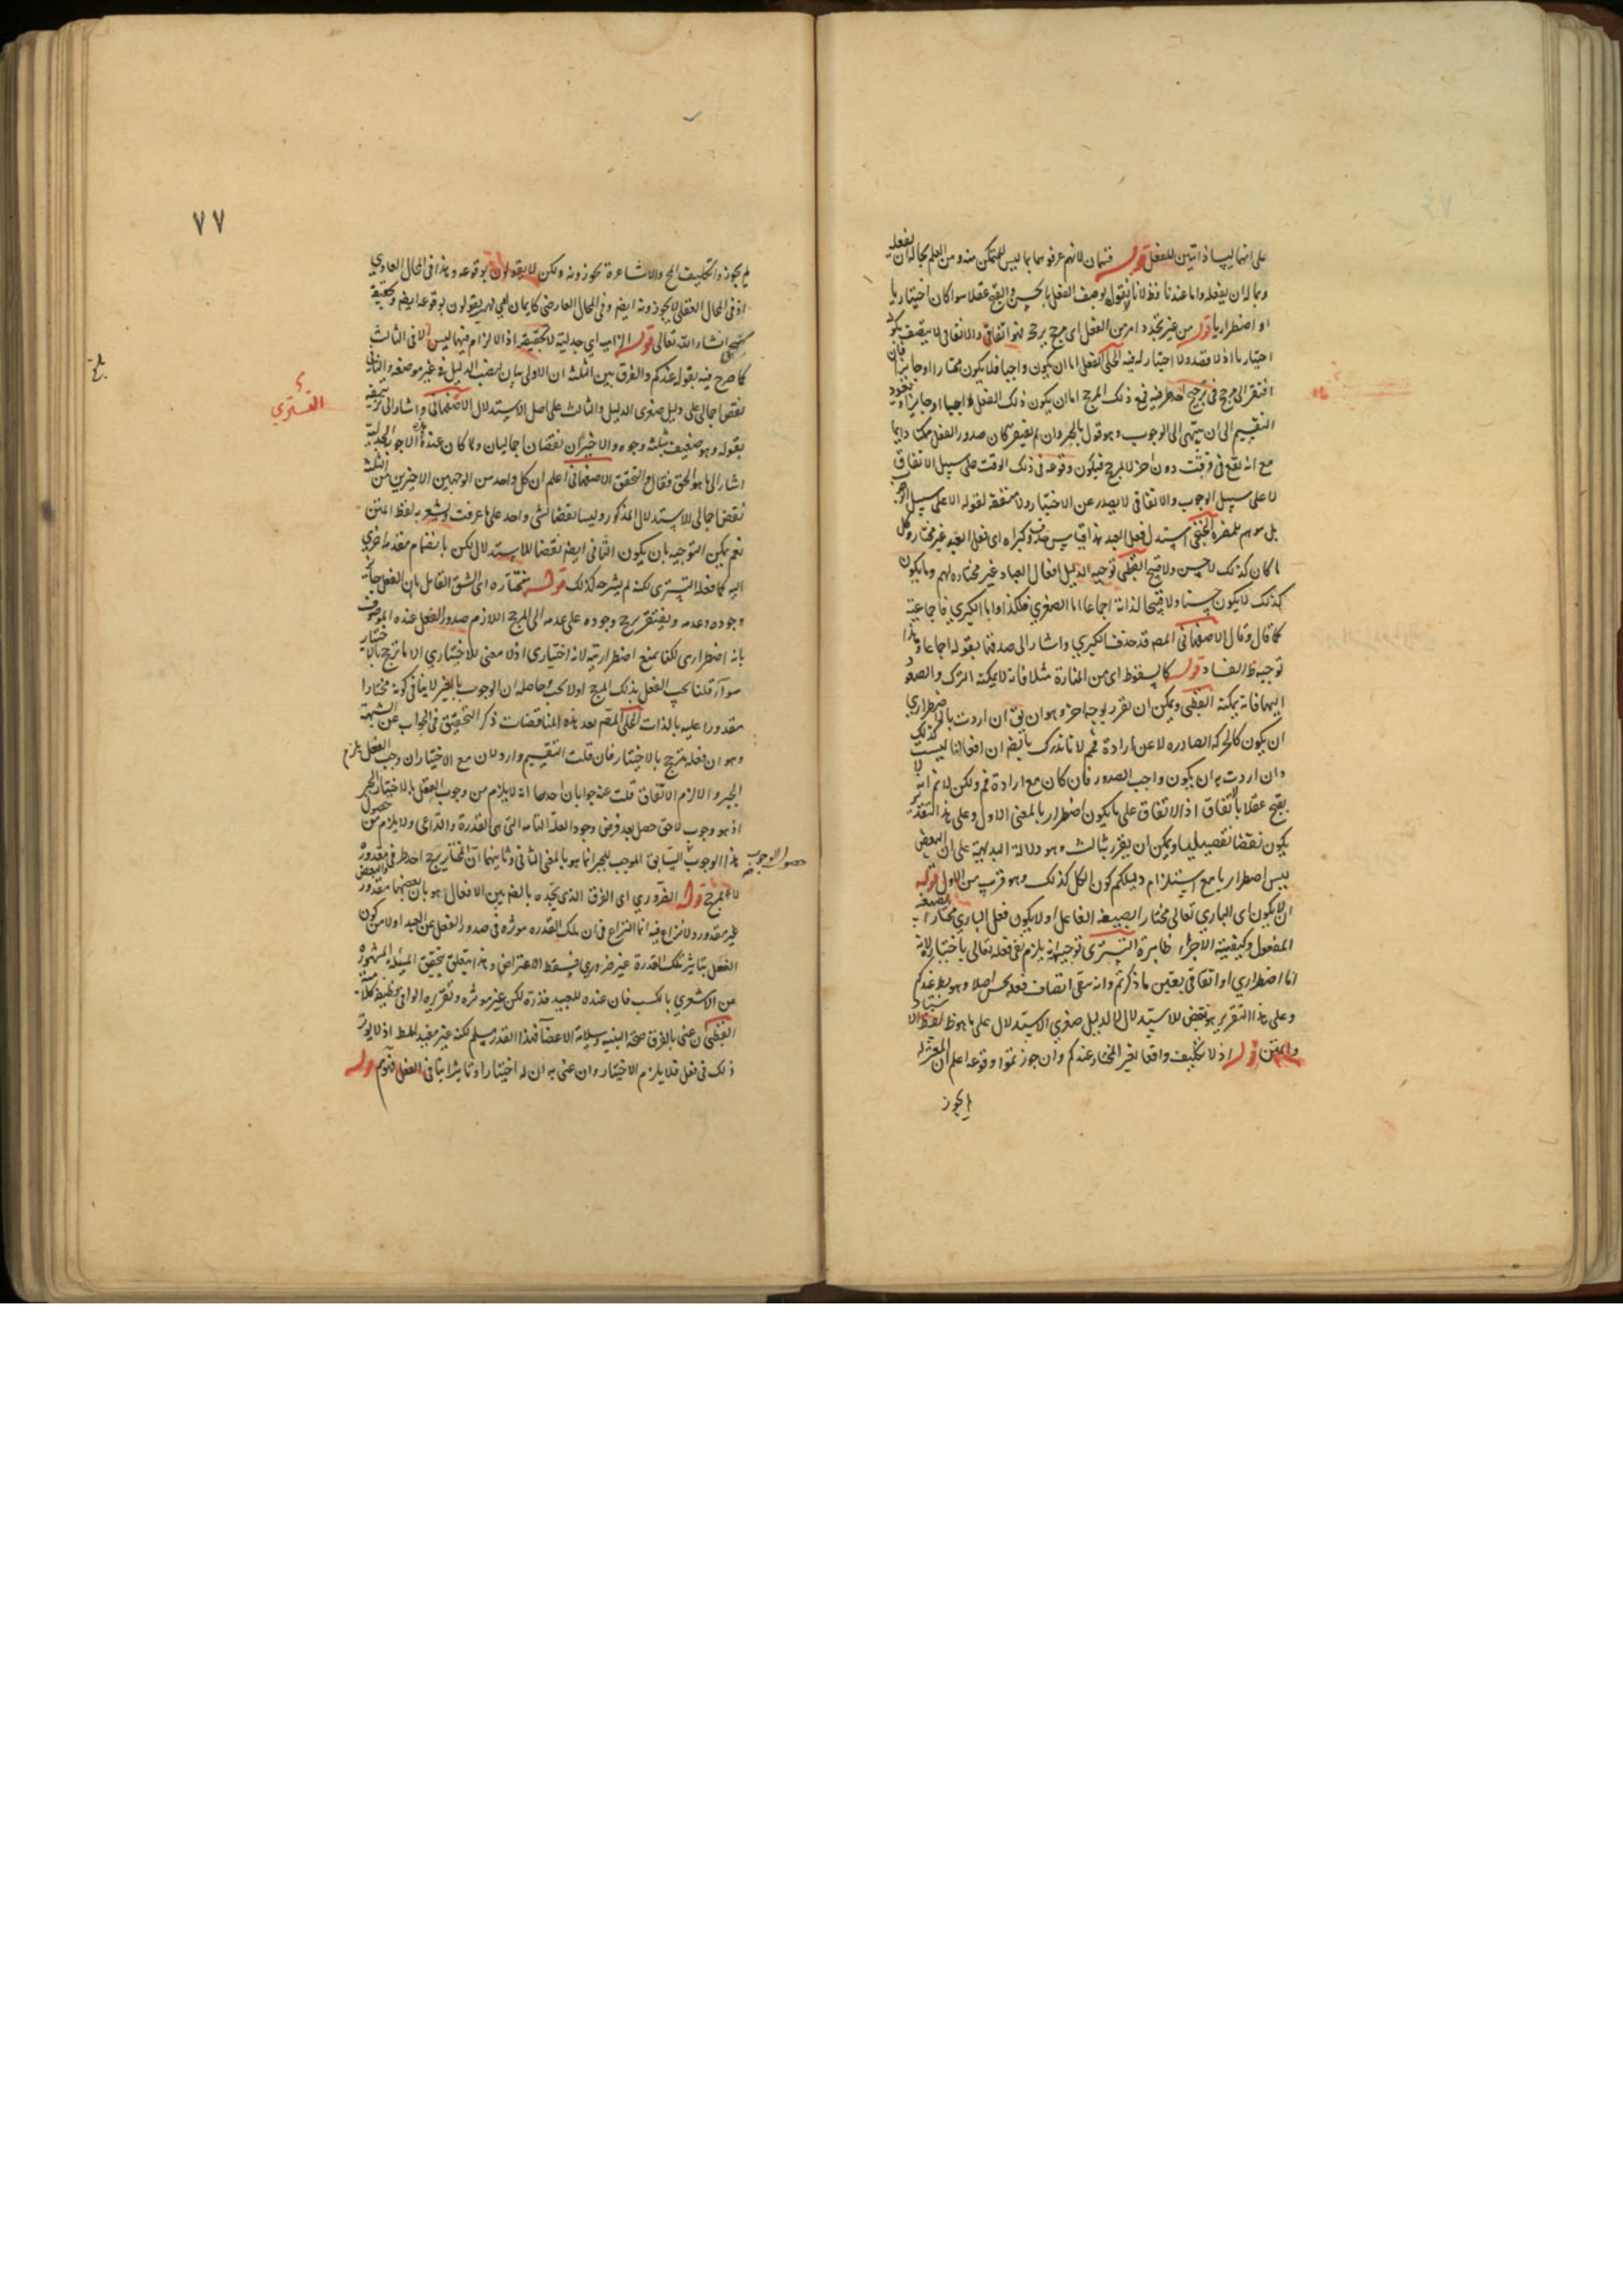 على انهما ليسا ذاتيين للفعل قوله فمنهما لانهم عرفوهما بما ليس للمتمكن منه ومن العلم بحاله ان يفعله
وبما له ان يفعله واما عندنا فلانا لا نقول بوصف الفعل بالحسن والقبح عقلا سوا كان اختياريا
او اضطراريا قوله من غير تجدد امر من الفعل اى مرجح يرجحه فهو اتفاقى والاتفاقى لا يتصف بكونه
اختياريا اذ لا قصد ولا اختيار له فيه الحلى الفعل اما ان يكون واجبا فلا يكون مختارا او جايزا فان
افتقر الى مرجح فى ترجيح احد طرفيه فمع ذلك المرجح اما ان يكون ذلك الفعل واجبا او جايزا ويعود
التقسيم الى ان ينتهى الى الوجوب وهو قول بالجبر وان لم يفتقر كان صدور الفعل ممكنا دايما
مع انه يقع فى وقت دون اخر لا لمرجح فيكون وقوعه فى ذلك الوقت على سبيل الاتفاق
لا على سبيل الوجوب والاتفاقى لا يصدر عن الاختيار ولا منفعة لقوله الا على سبيل
بل موهم بلمضرة الخنجى استدل فعل العبد هذا قياس وكبراه اى فعل العبد غير مختار وكل
ما كان كذلك لا حسن ولا قبيح القطبى توجيه الدليل افعال العباد غير مختاره لهم وما يكون
كذلك لا يكون حسنا ولا قبيحا لذاته اجماعا اما الصغرى فلكذا واما الكبرى فاجماعية
كما قال وقال الاصفهانى المصـ قد حذف الكبرى واشار الى صدقها بقوله اجماعا وهذا
توجيه ظـ الفساد قوله كالسقوط اى من المنارة مثلا فانه لا يمكنه الترك والصعود
اليها فانه يمكنه القطبى ويمكن ان تقرر بوجه اخر وهو ان يق ان اردت بالاضطرارى
ان يكون كالحركه الصادره لا عن ارادة فمم لانا ندرك بالضم ان افعالنا ليست كذلك
وان اردت به ان يكون واجب الصدور فان كان مع ارادة فم ولكن لا نم انه لا
يقبح عقلا بالاتفاق اذ الاتفاق على ما يكون اضطراريا بالمعنى الاول وعلى هذا التقدير
يكون نقضا تفصيليا ويمكن ان يقرر بثالث وهو دلالة البديهية على ان البعض
ليس اضطراريا مع استلزام دليلكم كون الكل كذلك وهو قريب من الاول قوله
ان لا يكون اى البارى تعالى مختارا بصيغة الفاعل او لا يكون فعل البارى مختارا بصيغة
المفعول وكيفية الاجراء ظاهرة التسترى توجيهه انه يلزم نفى فعله تعالى باختياره لانه
اما اضطرارى او اتفاقى بعين ما ذكرتم وانه ينفى اتصاف فعله بحسن اصلا وهو بط عندكم
وعلى هذا التقرير هو نقض للاستدلال لا لدليل صغرى الاستدلال على ما هو ظ لفظ
والمتن قوله اذ لا تكليف واقعا لغير المختار عندكم وان جوزتموا وقوعه اعلم ان المعتزله
لم يجوز
٧٧
لم يجوزوا تكليف المح والاشاعرة يجوزونه ولكن لا يقولون بوقوعه وهذا فى المحال العادى
اذ فى المحال العقلى لا يجوزونه ايضم وفى المحال العارضى كايمان ابى لهب يقولون بوقوعه ايضم وتحقيقه
سيجئ انشاء الله تعالى قوله الزاميه اى جدلية لا تحقيقيه اذ الالزام فيها ليس الا فى الثالث
كما صرح فيه بقوله عندكم والفرق بين الثلثة ان الاولى بيان نصب الدليل فى غير موضعه والثانى
نقض اجمالى على دليل صغرى الدليل والثالث على اصل الاستدلال الاصفهانى واشار الى تزييفه
بقوله وهو ضعيف بثلثة وجوه والاخيران نقضان اجماليان ولما كان عنده هذه الاجوبة الجدلية
اشار الى ما هو الحق فقال والتحقيق الاصفهانى اعلم ان كل واحد من الوجهين الاخيرين من الثلثة
نقض اجمالى للاستدلال المذكور وليسا نقضا لشى واحد على ما عرفت ويشعر به لفظ المتن
نعم يمكن التوجيه بان يكون الثانى ايضم نقضا للاستدلال لكن بانضمام مقدمة اخرى
اليه كما فعله التسترى لكنه لم يشرحه كذلك قوله نختاره اى الشق القايل بان الفعل جايز
وجوده وعدمه ويفتقر ترجح وجوده على عدمه الى المرجح اللازم صدور الفعل عنده الموصوف
بانه اضطرارى لكنا نمنع اضطراريته لانه اختيارى اذ لا معنى للاختيارى الا ما ترجح بالاختيار
سوآء قلنا يجب الفعل بذلك المرجح او لا يجب وحاصله ان الوجوب بالغير لا ينافى كونه مختارا
مقدورا عليه بالذات الحلى المقم بعد هذه المناقضات ذكر التحقيق فى الجواب عن الشبهة
وهو ان فعله يترجح بالاختيار فان قلت التقسيم وارد لان مع الاختيار ان وجب الفعل يلزم
الجبر والا لزم الاتفاق قلت عنه جوابان احدهما انه لا يلزم من وجوب الفعل بالاختيار الجبر
اذ هو وجوب لاحق حصل بعد فرض وجود العلة التامه التى هى القدرة والداعى ولا يلزم من حصول
هذا الوجوب السابق الموجب للجبر انما هو بالمعنى الثانى وثانيهما ان المختار يرجح احد طرفى مقدوره
حصول الوجوب
لا لمرجح قوله الضرورى اى الفرق الذى يجده بالضم بين الافعال هو بان بعضها مقدور والبعض
غير مقدور ولا نزاع فيه انما النزاع فى ان تلك القدره موثره فى صدور الفعل عن العبد او لا من كون
الفعل بتاثير تلك القدرة غير ضرورى فسقط الاعتراض وهذا يتعلق بتحقيق المسئلة المشهوره
من الاشعرى بالكسب فان عنده للعبيد قدرة لكن غير موثره وتقريره الوافى
القطبى ان عنى بالفرق صحة البنيه وسلامة الاعضآء فهذا القدر مسلم لكنه غير مفيد للمط اذ لا يوثر
ذلك فى فعل فلا يلزم الاختيار وان عنى به ان له اختيارا وتاثيرا بينا فى الفعل فهو مم قوله
التسترى